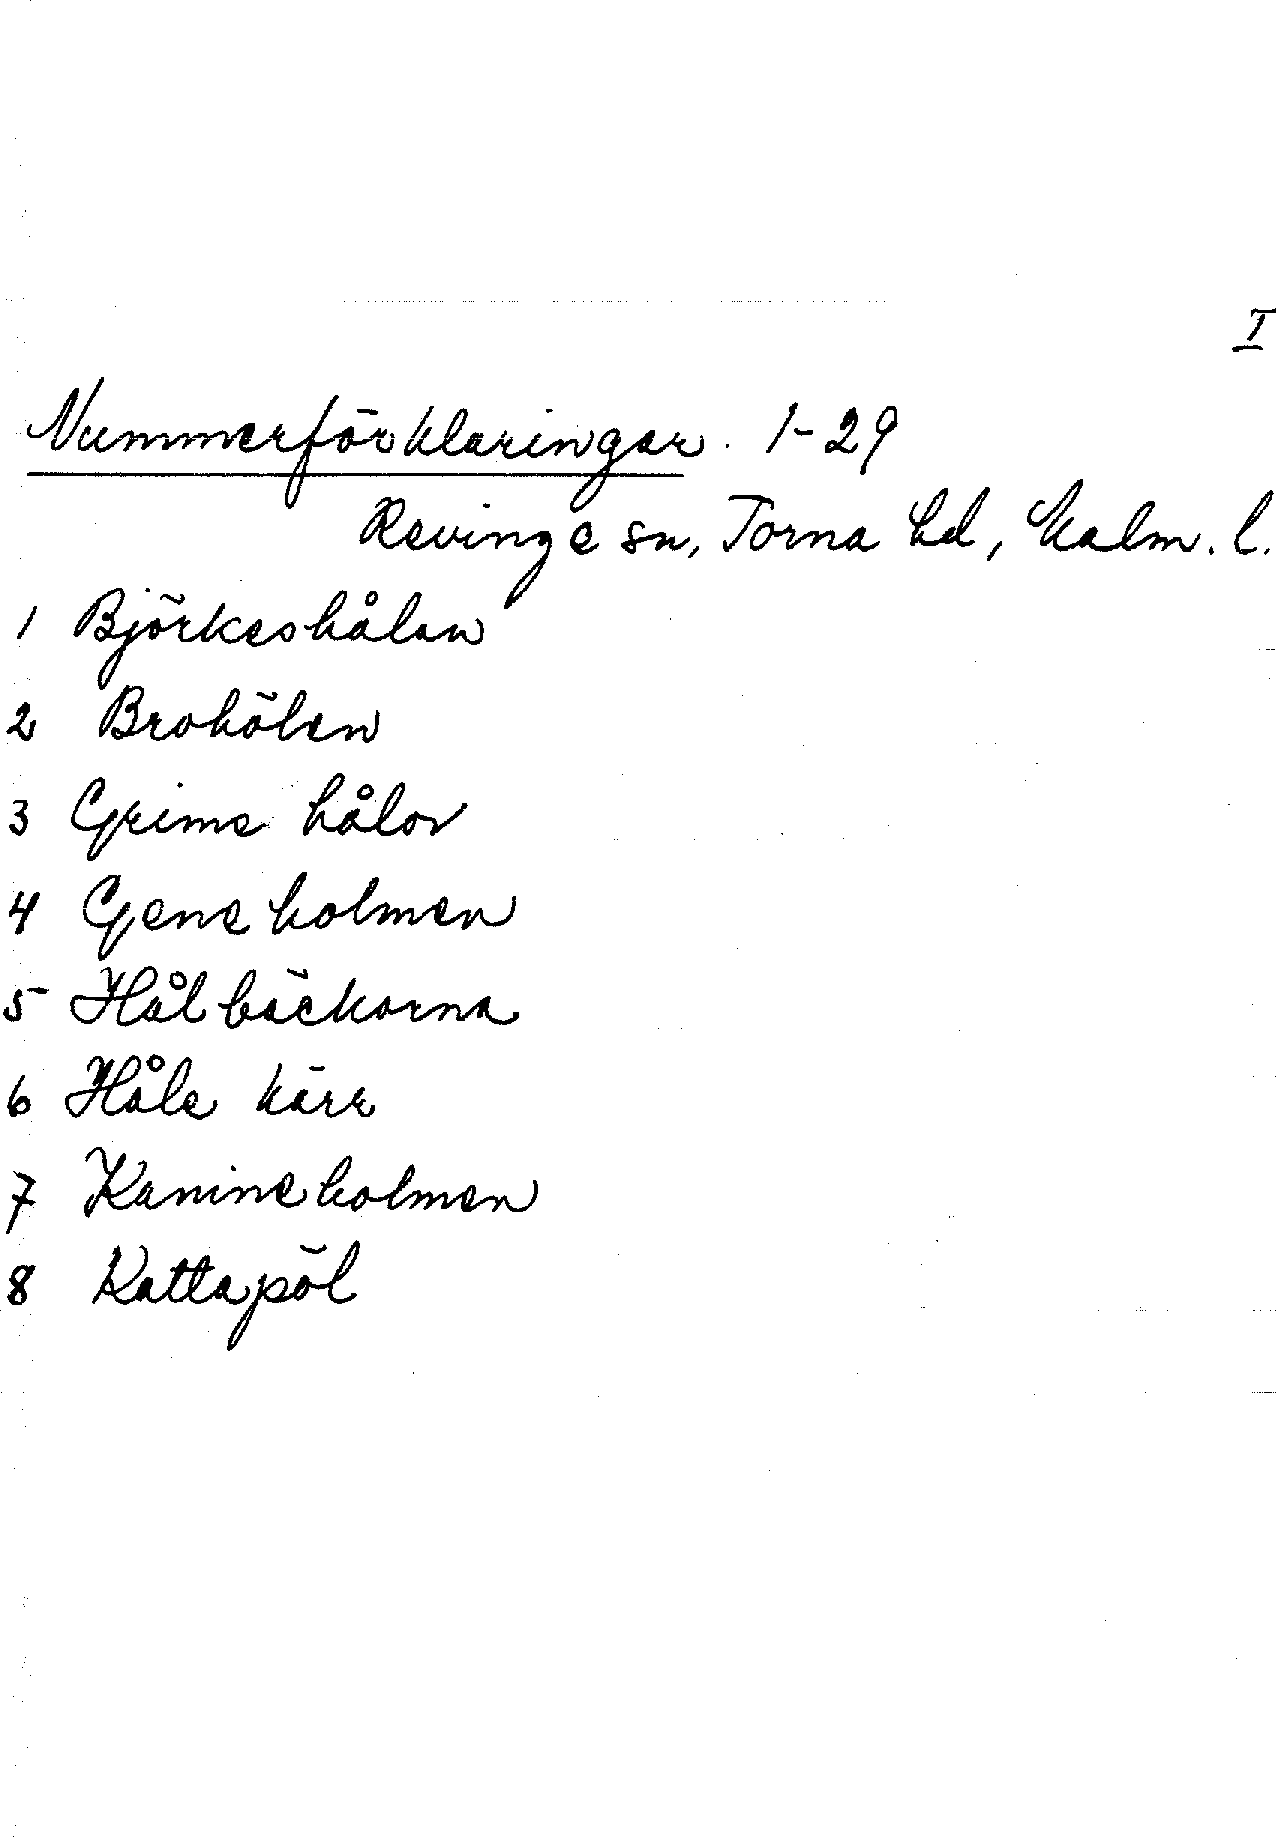 I
Nummerförklaringar. 1-29
Revinge sn, Torna hd, Malm. l.
1 Björkeshålan
2 Brohölen
3 Grime hålor
4 Gene holmen
5 Hålbäckarna
6 Håle kärr
7 Kanineholmen
8 Kattapöl